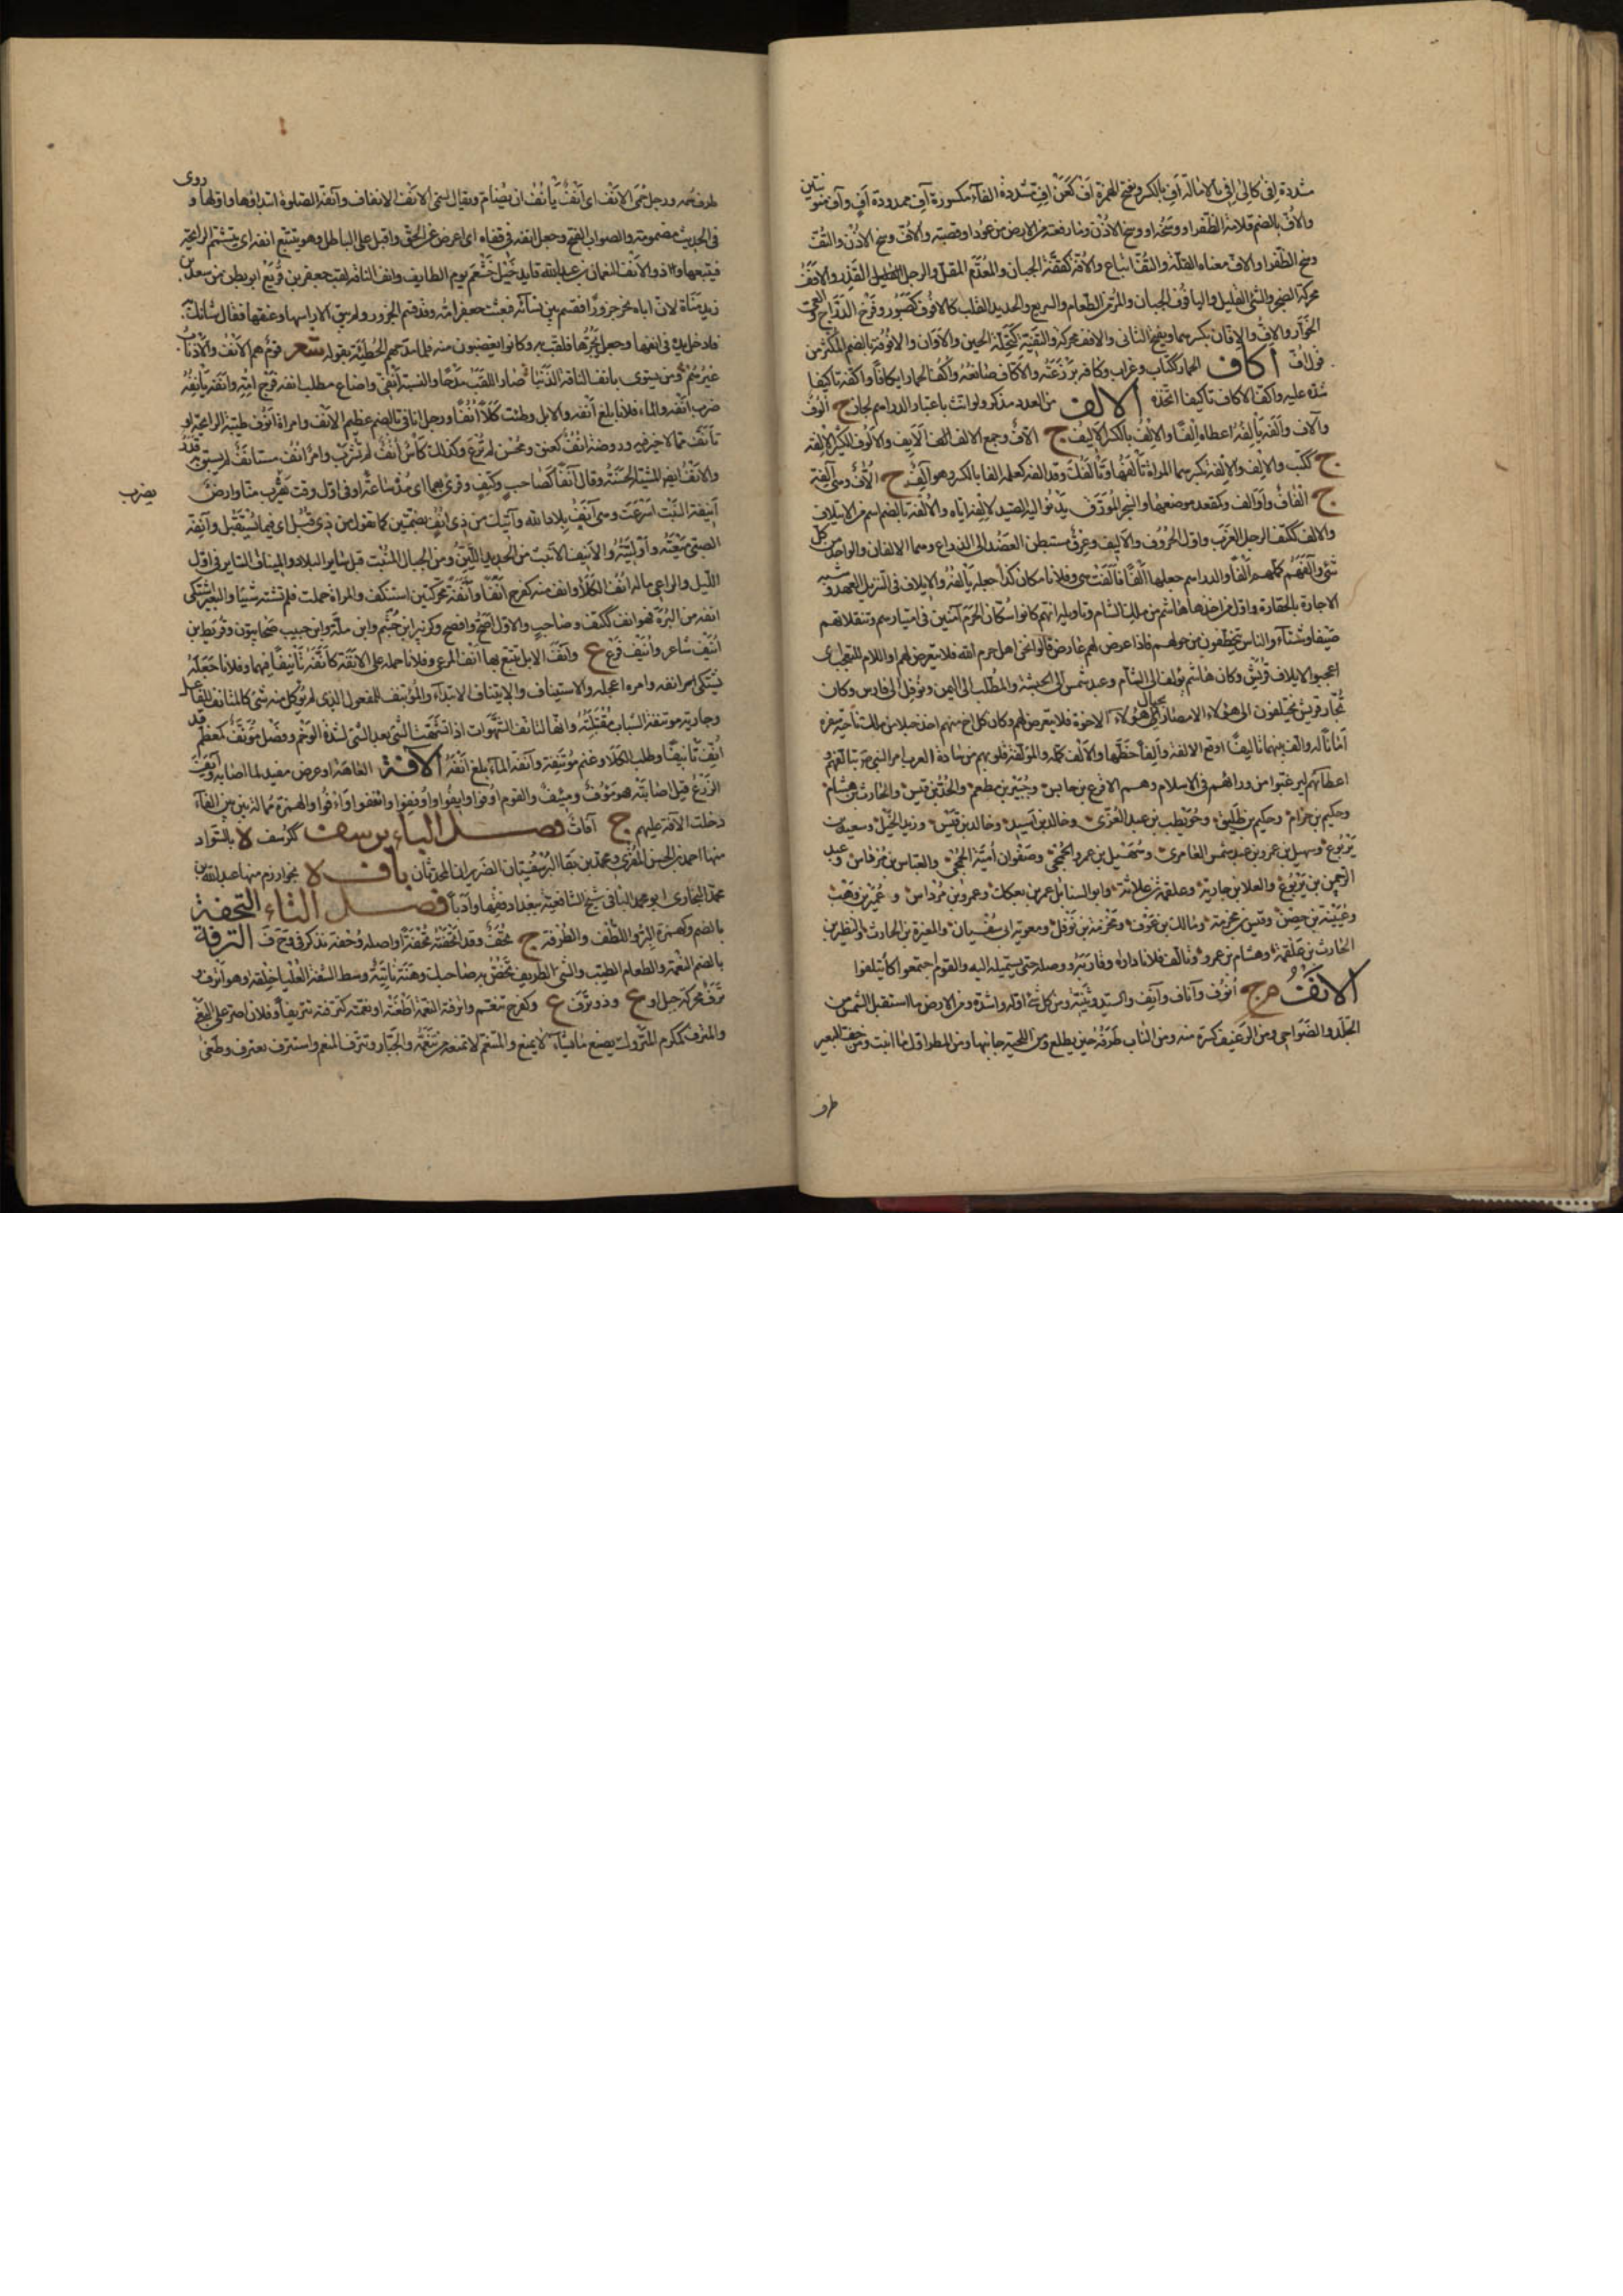 مشددة إفى كإلى إفى بالامالة إف بالكسر وبفتح الهمزة أف كعن إف مشددة الفاء مكسورة آف ممدودة آف وآف منونتين
والاف بالضم قلامة الظفر او وسخه او وسخ الاذن وما رفعته من الارض من عود او قصبة والاف وسخ الاذن والتف
وسخ الظفر او الاف معناه القلة والتف اتباع والافة كقفة الجبان والمعدم المقل والرجل القذر والافف
محركة الضجر والشئ القليل واليافوف الجبان والمر من الطعام والسريع والحديد القلب كالافوف كصبور وفرخ الدراج والعيي
الخوار والاف والافان بكسرهما ويفتح الثاني والافف محركة والتئفة كتحلة الحين والاوان والافوفة بالضم المكثر من
قول اف اكاف الحمار ككتاب وغراب ووكافه برذعته والاكاف صانعه وآكف الحمار ايكافا واكفه تاكيفا
شده عليه واكف الاكاف تاكيفا اتخذه الالف من العدد مذكر ولو انث باعتبار الدراهم لجاز ج الوف
وآلاف والفه يألفه اعطاه الفا والالف بالكسر الاليف ج آلاف وجمع الاليف الائف والالوف الكثير الالفة
ج ككتب والالف والالفة بكسرهما المراة تألفها وتألفك وقد الفه كعلمه الفا بالكسر وهو آلف ج الاف وهي آلفة
ج آلفات واوالف وكمقعد موضعها والشجر المورق يدنو اليه الصيد لالفه اياه والالفة بالضم اسم من الائتلاف
والالف ككتف الرجل العزب واول الحروف والاليف وعرق مستبطن العضد الى الذراع وهما الالفان والواحد من كل
شئ وآلفهم كملهم الفا والدراهم جعلها الفا فآلفت هي وفلانا مكان كذا جعله يألفه والايلاف في التنزيل العهد وشبه
الاجارة بالخفارة واول من اخذها هاشم من ملك الشام وتاويله انهم كانوا سكان الحرم آمنين في امتيارهم وتنقلاتهم
صيفا وشتاء والناس يتخطفون من حولهم فاذا عرض لهم عارض قالوا نحن اهل حرم الله فلا يتعرض لهم او اللام للتعجب اى
اعجبوا لايلاف قريش وكان هاشم يؤلف الى الشام وعبد شمس الى الحبشة والمطلب الى اليمن ونوفل الى فارس وكان
تجار قريش يختلفون الى هؤلاء الامصار بحبال هؤلاء الاخوة فلا يتعرض لهم وكان كل اخ منهم اخذ حبلا من ملك ناحية سفره
امانا له والف بينهما تاليفا اوقع الالفة والفا خطها والالف كمله والمؤلفة قلوبهم من سادة العرب امر النبي بتالفهم
اعطائهم ليرغبوا من وراءهم في الاسلام وهم الاقرع بن حابس وجبير بن مطعم والجد بن قيس والحارث بن هشام
وحكيم بن حزام وحكيم بن طليق وحويطب بن عبد العزى وخالد بن اسيد وخالد بن قيس وزيد الخيل وسعيد بن
يربوع وسهيل بن عمرو بن عبد شمس العامري وسهيل بن عمرو الجمحي وصفوان امية الجمحي والعباس بن مرداس وعبد
الرحمن بن يربوع والعلا بن جارية وعلقمة بن علاثة وابو السنابل عمرو بن بعكك وعمرو بن مرداس وعمير بن وهب
وعيينة بن حصن وقيس بن مخرمة ومالك بن عوف ومخرمة بن نوفل ومعوية ابي سفيان والمغيرة بن الحارث والنظير بن
الحارث بن علقمة وهشام بن عمرو وتألف فلانا داراه وقاربه ووصله حتى يستميله اليه والقوم اجتمعوا كأتلفوا
الانف م ج انوف وآناف وآنف والسيد وثنية ومن كل شئ اوله واشده ومن الارض ما استقبل الشمس من
الجلد والضواحي ومن الرغيف كسرة منه ومن الناب طرفه حين يطلع ومن اللحية جانبها ومن المطر اول ما انبت ومن خف البعير
طرف
طرف منسمه ورجل حمي الانف اى آنف يأنف ان يضام ويقال لسمي الانف الانفان وآنفة الصلوة ابتداؤها واولها وروى
في الحديث مضمومة والصواب الفتح وجعل انفه في قفاه اى اعرض عن الحق واقبل على الباطل وهو يتتبع انفه اى يتشمم الرائحة
فيتبعها وذو الانف النعمان بن عبد الله قايد خيل خثعم يوم الطايف وانف الناقة لقب جعفر بن قريع ابو بطن من سعد بن
زيد مناة لان اباه نحر جزورا فقسم بين نسائه فبعثت جعفر امه وقد قسم الجزور ولم يبق الا راسها وعنقها فقال شانك به
فادخل يده في انفها وجعل يجرها فلقب به وكانوا يغضبون منه فلما مدحهم الحطيئة بقوله شعر قوم هم الانف والاذناب
غيرهم ومن يسوي بانف الناقة الذنبا صار اللقب مدحا والنسبة انفي واضاع مطلب انفه فرج امه وانفه يأنفه
ضرب انفه والماء فلانا بلغ انفه والابل وطئت كلأ انفا ورجل انافي بالضم عظيم الانف وامراة انوف طيبة الرائحة او
تانف مما لا خير فيه وروضة انف كعنق ومحسن لم ترع وكذلك كأس انف لم تشرب وامر انف مستانف لم يسبق به قدر
والانف ايضا المشية الحسنة وقال آنفا كصاحب وكتف وقرئ بهما اى مذ ساعة او في اول وقت يقرب منا وارض
يضرب
انيفة النبت اسرعت وهي آنف بلاد الله وآتيك من ذي انف بضمتين كما تقول من ذي قبل اى فيما يستقبل وآنفة
الصبي ميعته واوليته والانيف الانيث من الحديد اللين ومن الجبال المنبت قبل سائر البلاد والمئناف السائر في اول
الليل والراعي ماله انف الكلأ وانف منه كفرح انفا وانفة محركتين استنكف والمراة حملت فلم تشته شيئا والبعير اشتكى
انفه من البرة فهو انف ككتف وصاحب والاول اصح وافصح وكزبير ابن جشم وابن ملة وابن حبيب صحابيون وقريط بن
انيف شاعر وانيف فرع ع وآنف الابل تتبع بها انف المرعى وفلانا حمله على الانفة كأنفه تأنيفا فيهما وفلانا جعله
يشتكي انفه وامره اعجله والاستيناف والايتناف الابتداء والمؤتنف للمفعول الذي لم يؤكل منه شئ كالمتانف للفاعل
وجارية مؤتنفة الشباب مقتبلته وانها لتانف الشهوات اذا تشهت الشئ بعد الشئ لشدة الوحم ونصل مؤنف كمعظم قد
انف تأنيفا وطلب الكلأ وغنم مؤنفة وآنفه الماء بلغ انفه الآفة العاهة او عرض مفسد لما اصابه وايف
الزرع قيل اصابته فهو مؤف ومئيف والقوم اوفوا وايفوا واوفوا وانفوا واوفوا والهمزة ممالة بينها وبين الفاء
دخلت الآفة عليهم ج آفات فصل الباء برسف كرسف لا بالسواد
منها احمد بن الحسن المقرى ومحمد بن بقا البرسفيتان الضريران المحدثان باف لا بخوارزم منها عبد الله بن
محمد البخاري ابو محمد البافي شيخ الشافعية ببغداد فقيها وادبا فصل التاء التحفة
بالضم وكهمزة البر واللطف والطرفة ج تحف وقد اتحفته تحفة او اصله وحفة تذكر في وح ف الترفة
بالضم النعمة والطعام الطيب والشئ الطريف تخص به صاحبك وهنة ناتئة وسط الشفة العليا خلقة وهو اترف و
ترف محركة جبل او ع وذو ترف ع وكفرح تنعم واترفته النعمة اطغته او نعمته كترفته تتريفا وفلان اصر على البغي
والمترف كمكرم المتروك يصنع ما يشاء لا يمنع والمتنعم لا تمنعه من تنعمه والجبار وتترف المنعم واستترف تعترف وطغى